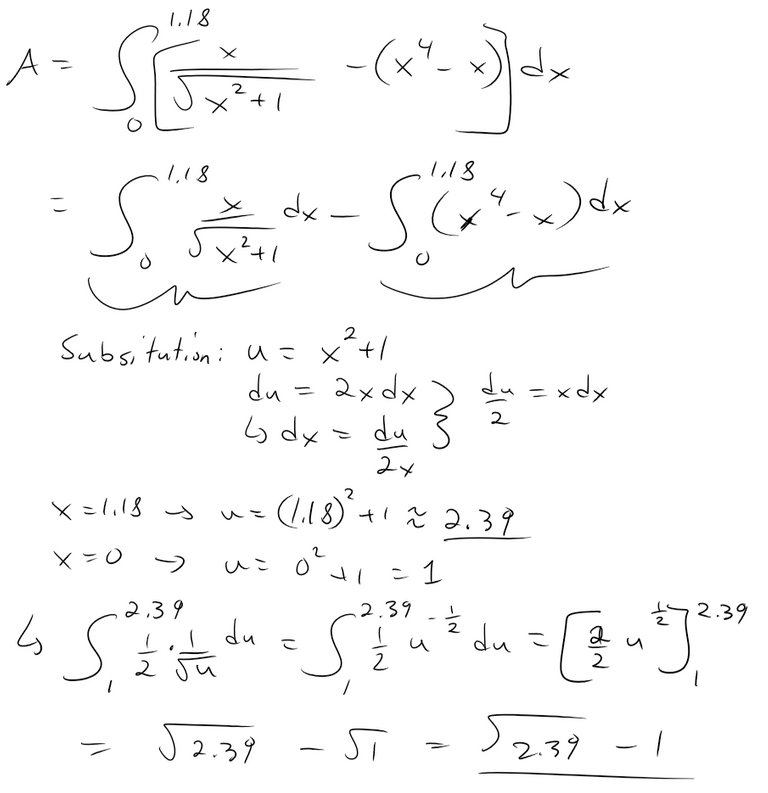 A = ∫₀^1.18 [x/√(x²+1) - (x⁴ - x)] dx
= ∫₀^1.18 x/√(x²+1) dx - ∫₀^1.18 (x⁴ - x) dx
Substitution: u = x²+1
du = 2x dx } du/2 = x dx
↳ dx = du/2x
x = 1.18 → u = (1.18)² + 1 ≈ 2.39
x = 0 → u = 0² + 1 = 1
↳ ∫₁^2.39 1/2 · 1/√u du = ∫₁^2.39 1/2 u^(-1/2) du = [2/2 u^(1/2)]₁^2.39
= √2.39 - √1 = √2.39 - 1